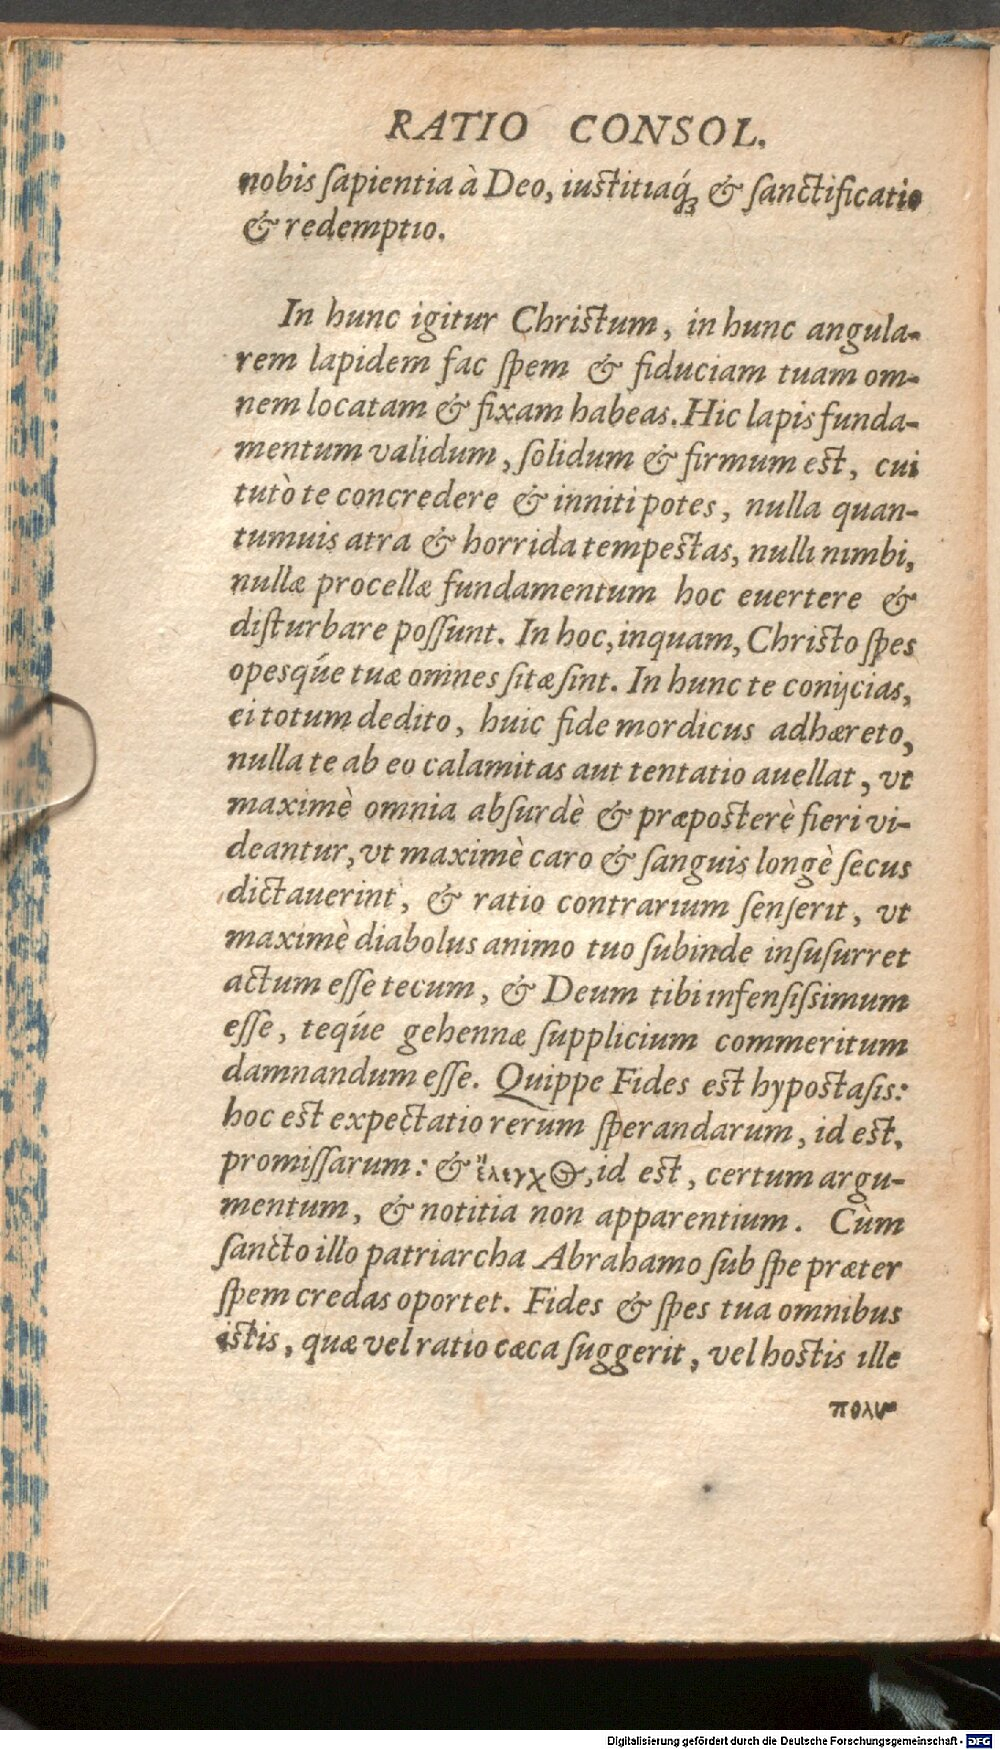 RATIO CONSOL.
nobis ſapientia à Deo, iustitiaq́ꝫ & ſanctificatio
& redemptio.
In hunc igitur Christum, in hunc angula-
rem lapidem fac ſpem & fiduciam tuam om-
nem locatam & fixam habeas. Hic lapis funda-
mentum validum, ſolidum & firmum est, cui
tutò te concredere & inniti potes, nulla quan-
tumuis atra & horrida tempestas, nulli nimbi,
nullæ procellæ fundamentum hoc euertere &
diſturbare poſſunt. In hoc, inquam, Christo ſpes
opesq́ue tuæ omnes ſitæ ſint. In hunc te conijcias,
ei totum dedito, huic fide mordicus adhæreto,
nulla te ab eo calamitas aut tentatio auellat, vt
maximè omnia abſurdè & præposterè fieri vi-
deantur, vt maximè caro & ſanguis longè ſecus
dictauerint, & ratio contrarium ſenſerit, vt
maximè diabolus animo tuo ſubinde inſuſurret
actum eſſe tecum, & Deum tibi infenſiſsimum
eſſe, teq́ue gehennæ ſupplicium commeritum
damnandum eſſe. Quippe Fides est hypostaſis:
hoc est expectatio rerum ſperandarum, id est,
promiſſarum: & ἔλεγχος, id est, certum argu-
mentum, & notitia non apparentium. Cùm
ſancto illo patriarcha Abrahamo ſub ſpe præter
ſpem credas oportet. Fides & ſpes tua omnibus
istis, quæ vel ratio cæca ſuggerit, vel hostis ille
πολυ-
Digitalisierung gefördert durch die Deutsche Forschungsgemeinschaft - DFG